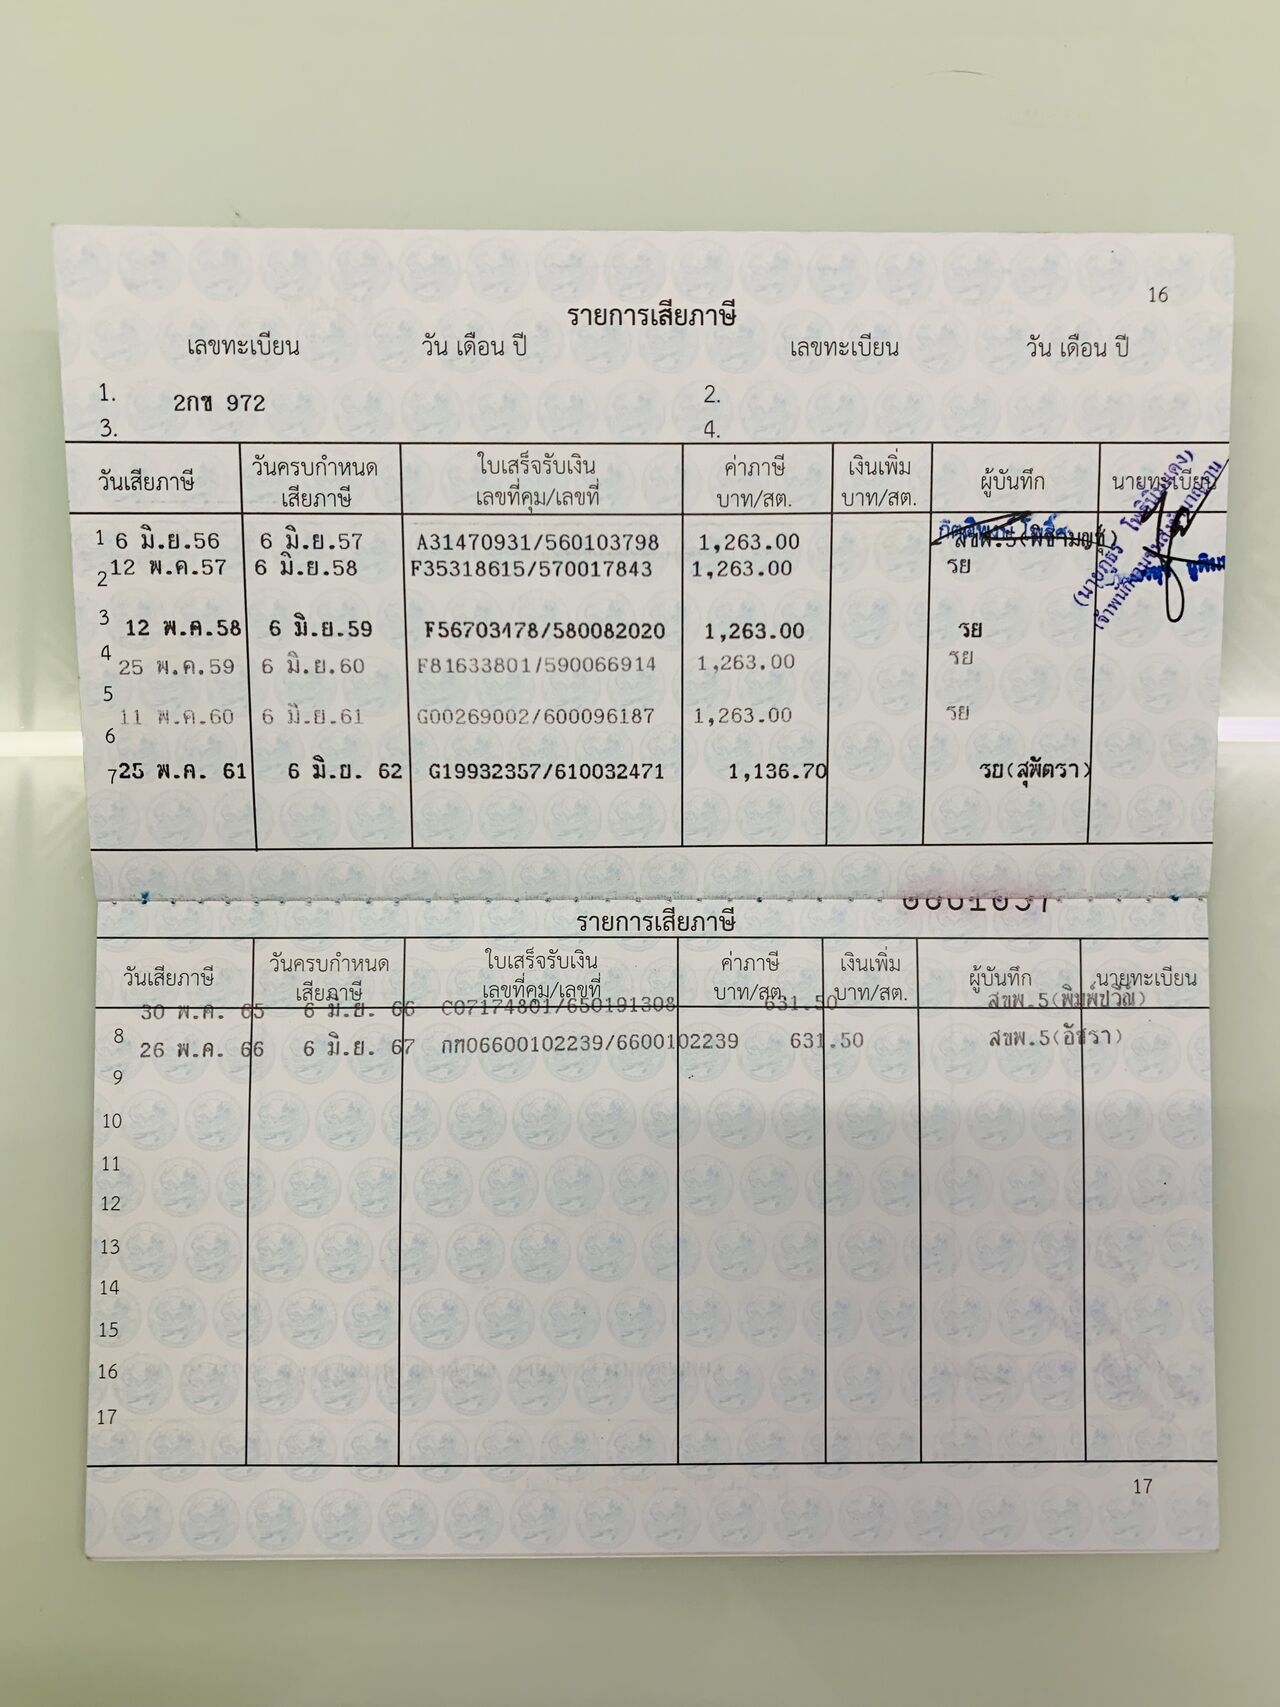 16
รายการเสียภาษี
เลขทะเบียน วัน เดือน ปี เลขทะเบียน วัน เดือน ปี
1. 2กข 972 2.
3. 4.
วันเสียภาษี วันครบกำหนดเสียภาษี ใบเสร็จรับเงิน เลขที่คุม/เลขที่ ค่าภาษี บาท/สต. เงินเพิ่ม บาท/สต. ผู้บันทึก นายทะเบียน
1 6 มิ.ย.56 6 มิ.ย.57 A31470931/560103798 1,263.00 สขพ.5(พิชามญชุ์)
2 12 พ.ค.57 6 มิ.ย.58 F35318615/570017843 1,263.00 รย
3 12 พ.ค.58 6 มิ.ย.59 F56703478/580082020 1,263.00 รย
4 25 พ.ค.59 6 มิ.ย.60 F81633801/590066914 1,263.00 รย
5 11 พ.ค.60 6 มิ.ย.61 G00269002/600096187 1,263.00 รย
6
7 25 พ.ค. 61 6 มิ.ย. 62 G19932357/610032471 1,136.70 รย(สุพัตรา)
รายการเสียภาษี
วันเสียภาษี วันครบกำหนดเสียภาษี ใบเสร็จรับเงิน เลขที่คุม/เลขที่ ค่าภาษี บาท/สต. เงินเพิ่ม บาท/สต. ผู้บันทึก นายทะเบียน
30 พ.ค. 65 6 มิ.ย. 66 C07174801/650191308 631.50 สขพ.5(พิมพ์ปวีณ์)
8 26 พ.ค. 66 6 มิ.ย. 67 กท06600102239/6600102239 631.50 สขพ.5(อัชรา)
9
10
11
12
13
14
15
16
17
17